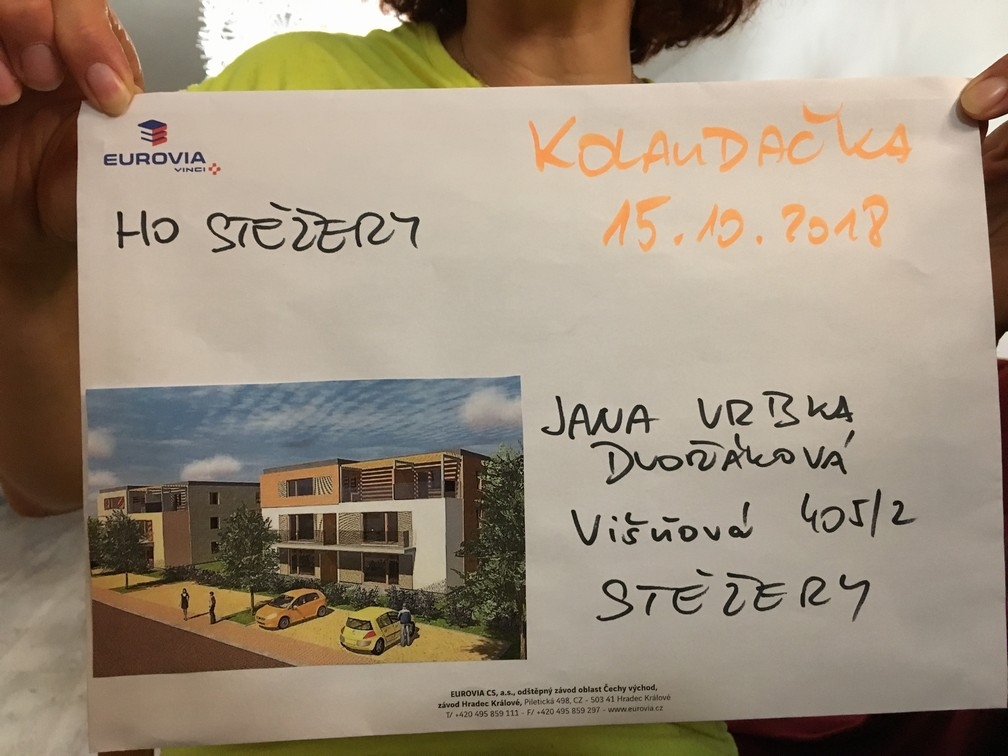 EUROVIA
VINCI
KOLAUDAČKA
15.10.2018
HO STĚŽERY
JANA VRBKA
DVOŘÁKOVÁ
Višňová 405/2
STĚŽERY
EUROVIA CS, a.s., odštěpný závod oblast Čechy východ,
závod Hradec Králové, Piletická 498, CZ - 503 41 Hradec Králové
T/ +420 495 859 111 - F/ +420 495 859 297 - www.eurovia.cz